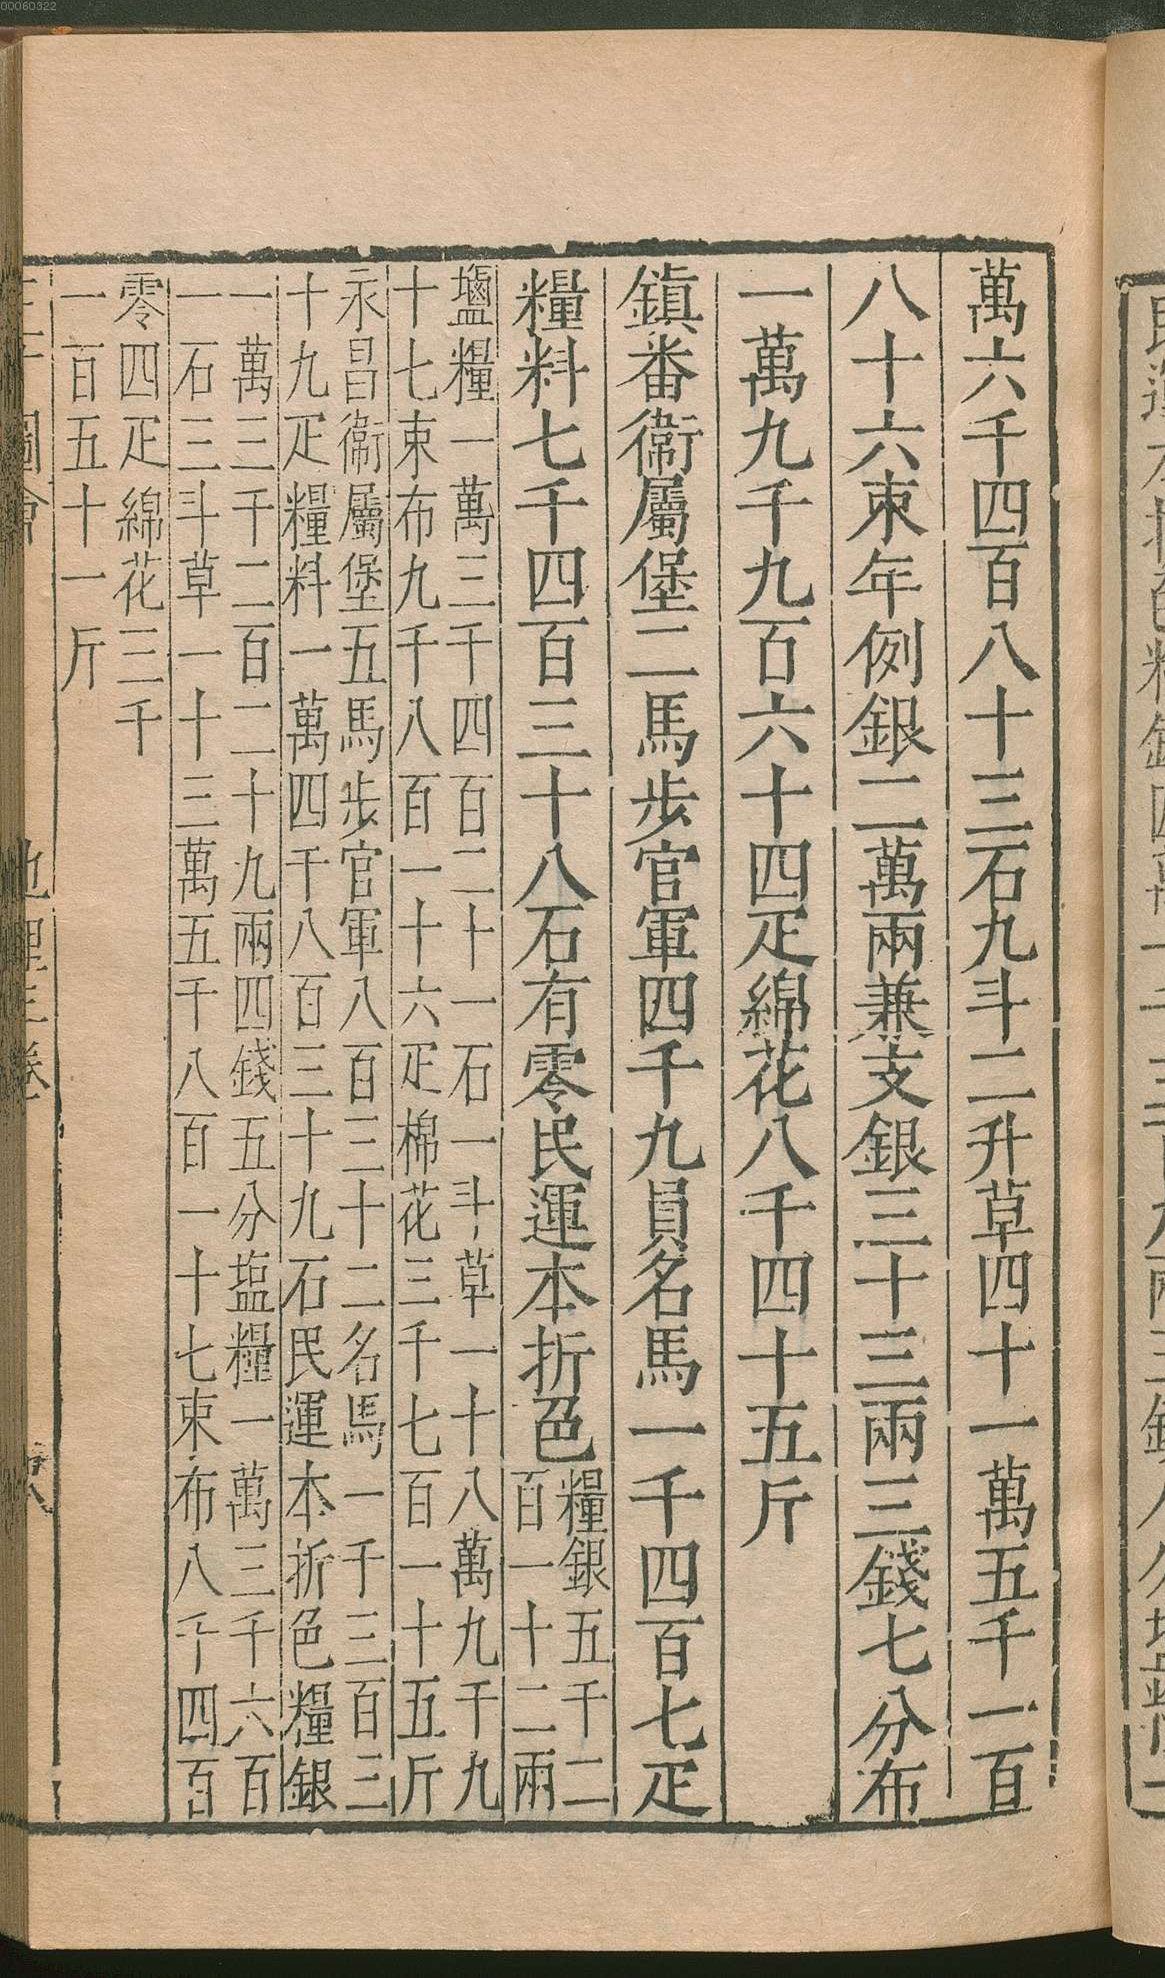 萬六千四百八十三石九斗二升草四十一萬五千一百
八十六束年例銀二萬兩兼支銀三十三兩三錢七分布
一萬九千九百六十四疋綿花八千四十五斤
鎮番衛屬堡二馬步官軍四千九員名馬一千四百七疋
糧料七千四百三十八石有零民運本折色
糧銀五千二
百一十二兩
鹽糧一萬三千四百二十一石一斗草一十八萬九千九
十七束布九千八百一十六疋棉花三千七百一十五斤
永昌衛屬堡五馬步官軍八百三十二名馬一千三百三
十九疋糧料一萬四千八百三十九石民運本折色糧銀
一萬三千二百二十九兩四錢五分塩糧一萬三千六百
一石三斗草一十三萬五千八百一十七束布八千四百
零四疋綿花三千
一百五十一斤
圖會
地理三卷
00060322